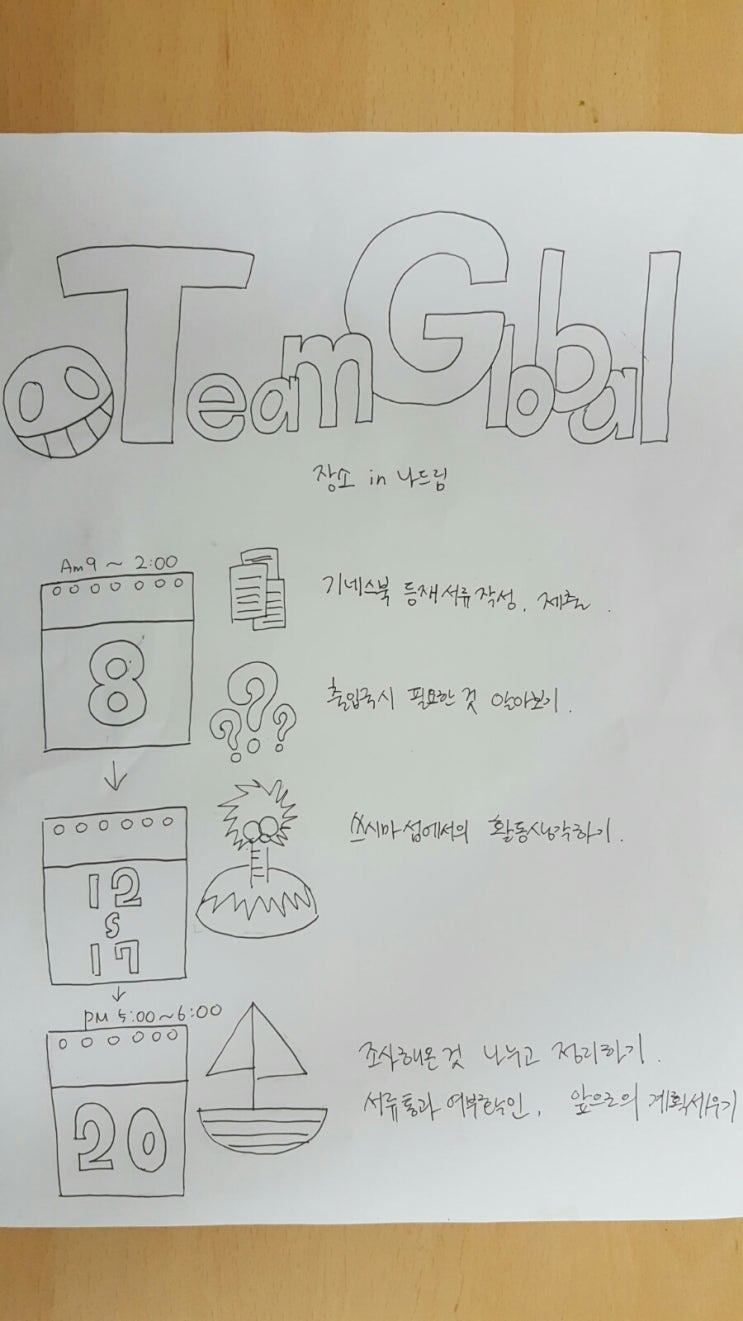 Team Global
장소 in 나드림
Am 9 ~ 2:00
8
기네스북 등재서류작성, 제출.
???
출입국시 필요한 것 알아보기.
12
S
17
쓰시마섬에서의 활동생각하기.
PM 5:00~6:00
20
조사해온것 나누고 정리하기.
서류통과 여부확인, 앞으로의 계획세우기